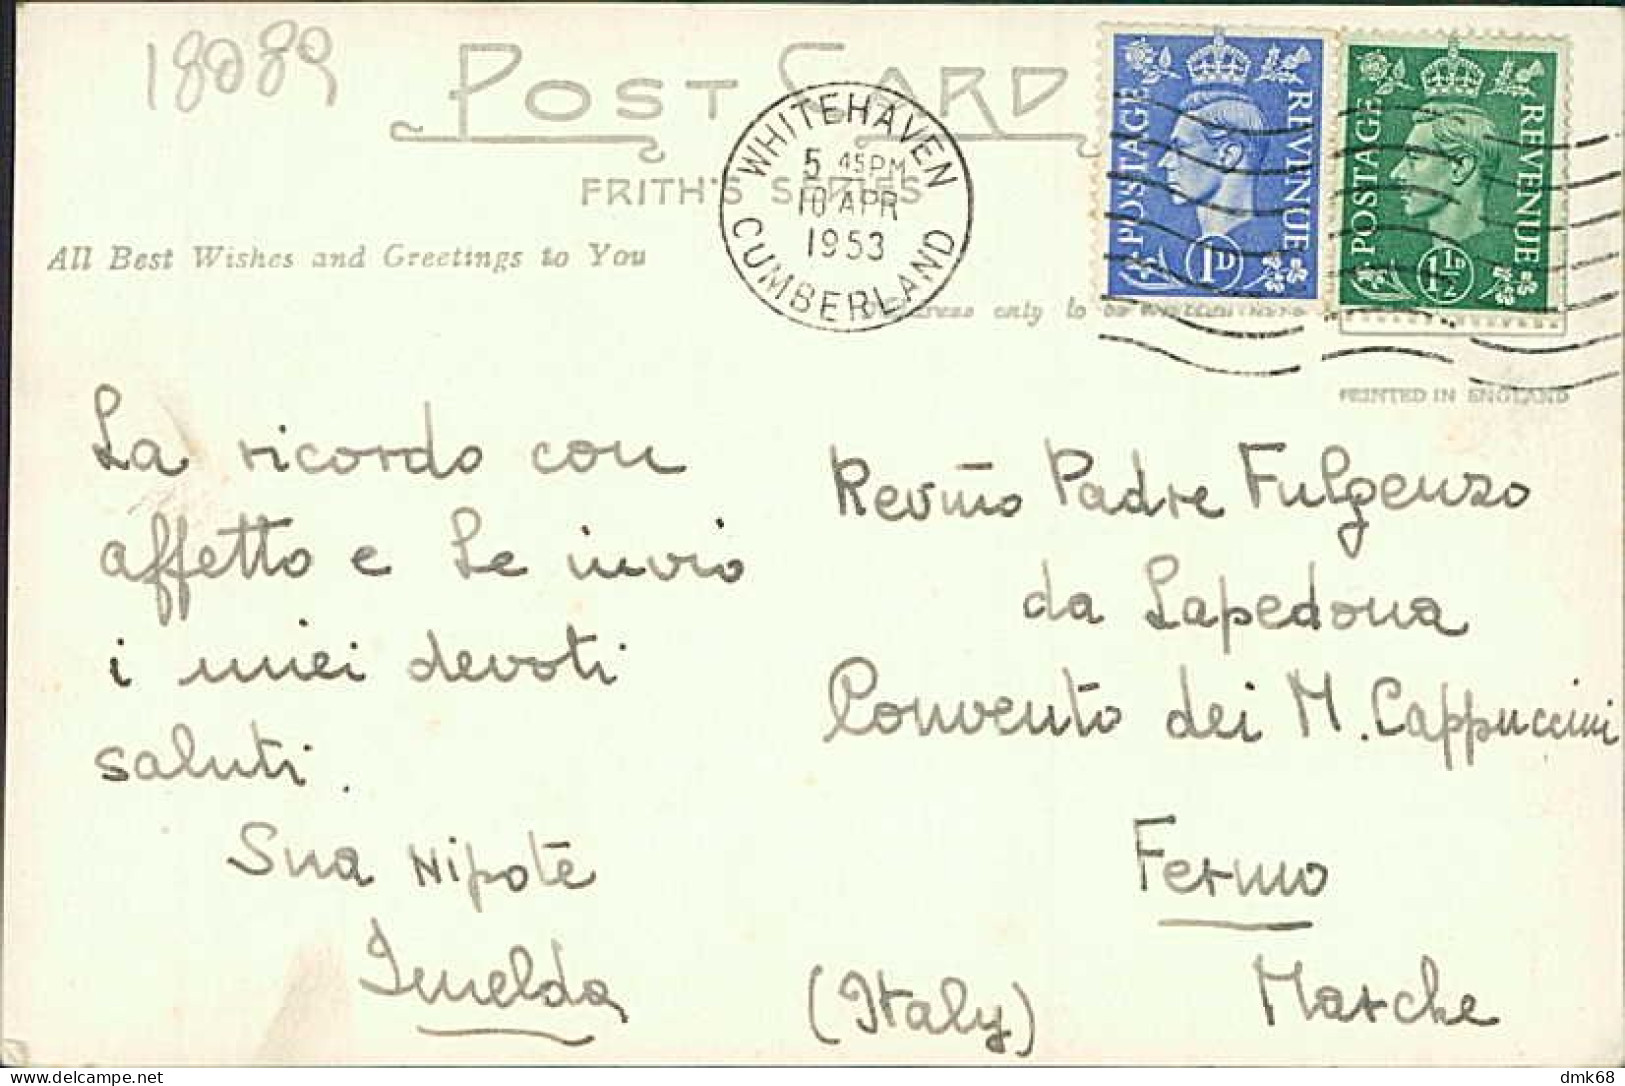 18089
POST CARD
FRITH'S SERIES
All Best Wishes and Greetings to You
WHITEHAVEN
5 45PM
10 APR
1953
CUMBERLAND
POSTAGE REVENUE
1D
POSTAGE REVENUE
1½D
Address only to be written here
PRINTED IN ENGLAND
La ricordo con
affetto e Le invio
i miei devoti
saluti.
Sua Nipote
Imelda
Revmo Padre Fulgenzo
da Lapedona
Convento dei M. Cappuccini
Fermo
(Italy) Marche
delcampe.net
dmk68